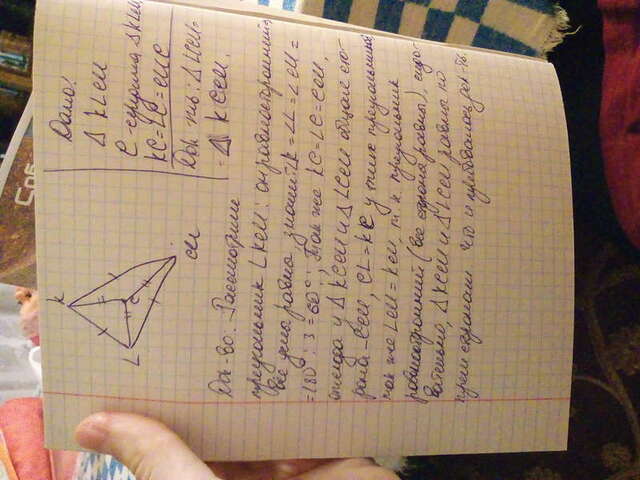 K
L
C
M
Дано:
Δ KLM
C - середина Δ KLM
KC = LC = MC
Док-ть: Δ LCM =
= Δ KCM.
Док-во: Рассмотрим
треугольник LKM: он равносторонний,
все углы равны значит ∠K = ∠L = ∠M =
= 180° : 3 = 60°. Так же KC = LC = CM,
отсюда у Δ KCM и Δ LCM общая сто-
рона - CM, CL = KC у этих треугольников
так же LM = KM, т. к треугольник
равносторонний (все стороны равны), следо-
вательно, Δ KCM и Δ LCM равны по
трем сторонам что и требовалось